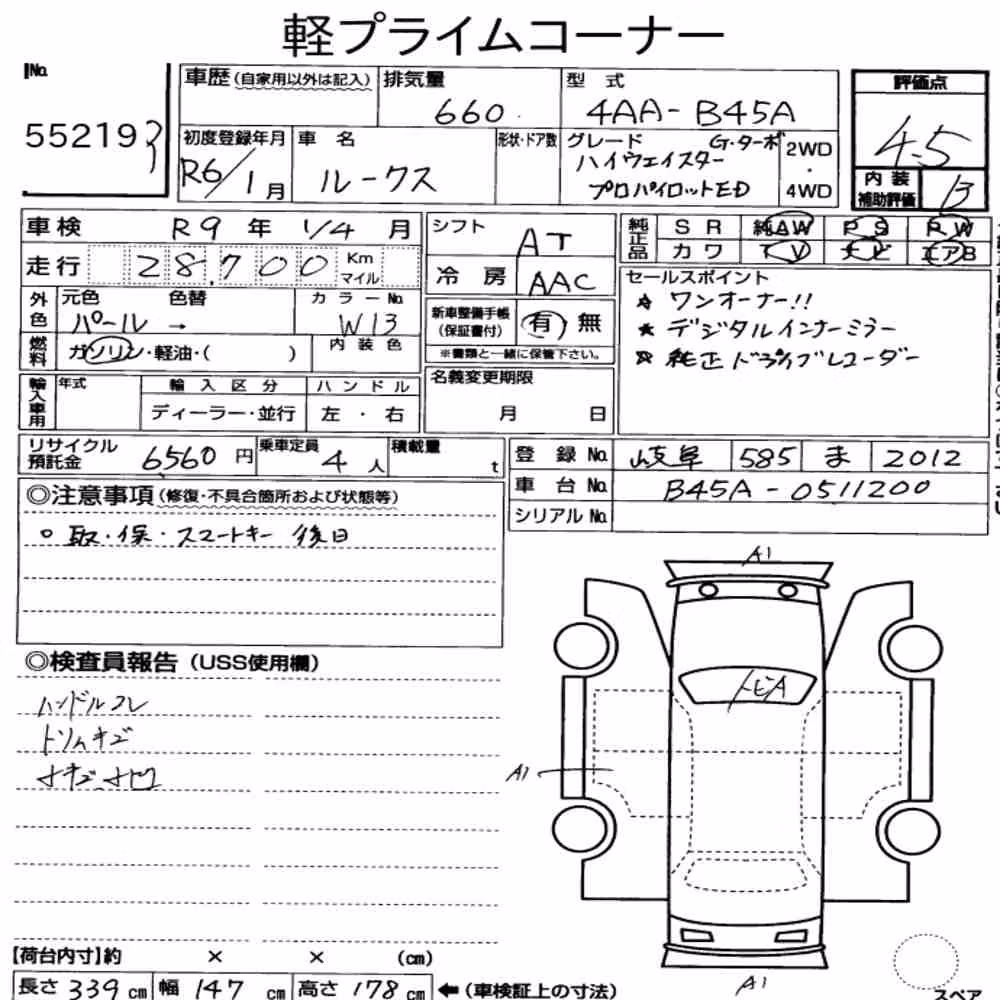 軽プライムコーナー
No.
55219
車歴(自家用以外は記入)
排気量
660
型 式
4AA-B45A
評価点
4.5
初度登録年月
R6/1月
車 名
ルークス
形状・ドア数
グレード G・ターボ
ハイウェイスター
プロパイロットED
2WD
・
4WD
内装
補助評価
B
車検 R9年 1/4月
走行 28,700 Km マイル
シフト
AT
冷房 AAC
純正品 SR 純AW PS PW
カワ TV ナビ エアB
外色
元色
色替
パール→
カラーNo.
W13
燃料
ガソリン・軽油・( )
内装色
新車整備手帳
(保証書付)
有 無
※書類と一緒に保管下さい。
セールスポイント
★ ワンオーナー!!
★ デジタルインナーミラー
★ 純正ドライブレコーダー
輸入車用
年式
輸入区分
ハンドル
ディーラー・並行
左・右
名義変更期限
月 日
リサイクル
預託金
6560円
乗車定員
4人
積載量
t
登録No. 岐阜 585 ま 2012
車台No. B45A-0511200
シリアルNo.
◎注意事項(修復・不具合箇所および状態等)
○ 取・保・スマートキー 後日
◎検査員報告(USS使用欄)
ハンドルスレ
トリムキズ
小キズ、小凹
A1
トビA
A1
A1
スペア
【荷台内寸】約 × × (cm)
長さ 339 cm 幅 147 cm 高さ 178 cm ←(車検証上の寸法)